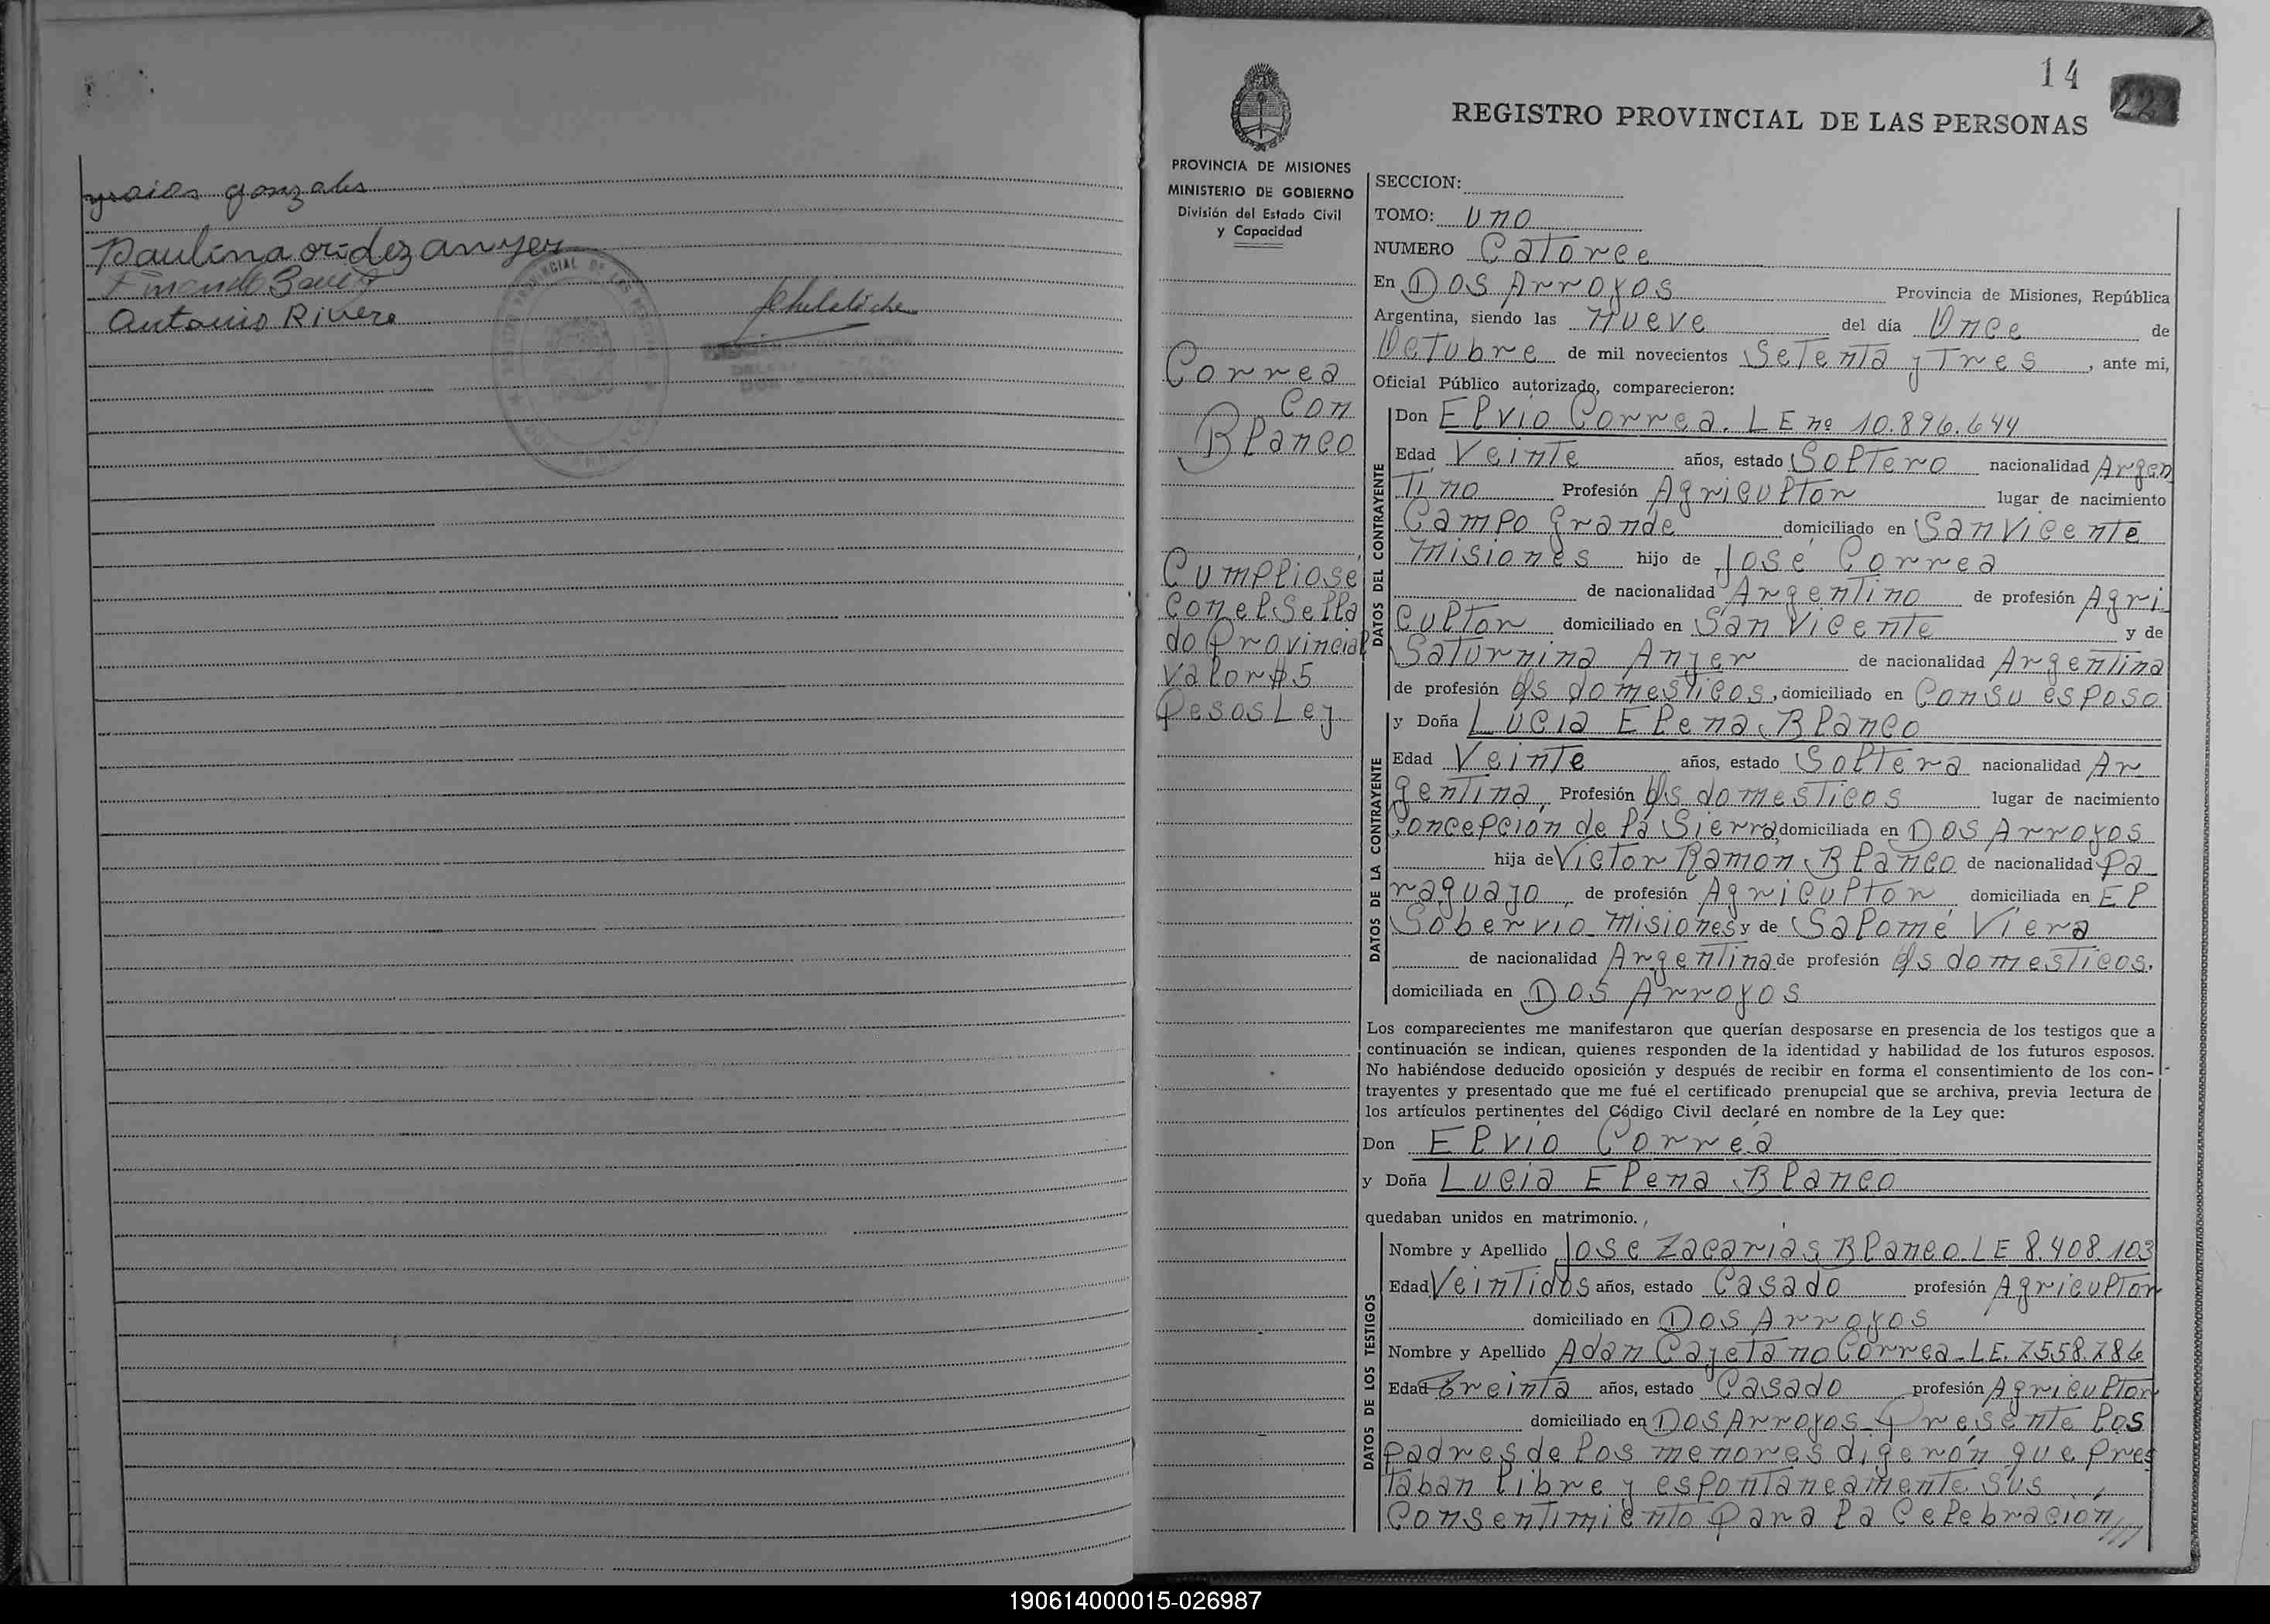 gonzales
Paulina
Antonio Rivero
14
REGISTRO PROVINCIAL DE LAS PERSONAS
PROVINCIA DE MISIONES
MINISTERIO DE GOBIERNO
División del Estado Civil
y Capacidad
Correa
Con
Blanco
Cumpliose
Con el Sella
do Provincial
Valor $ 5
Pesos Ley
SECCION:
TOMO: Uno
NUMERO Catorce
En Dos Arroyos Provincia de Misiones, República
Argentina, siendo las Nueve del día Once de
Octubre de mil novecientos Setenta y Tres, ante mi,
Oficial Público autorizado, comparecieron:
DATOS DEL CONTRAYENTE
Don Elvio Correa. L E nº 10.896.644
Edad Veinte años, estado Soltero nacionalidad Argen
Tino Profesión Agricultor lugar de nacimiento
Campo Grande domiciliado en San Vicente
Misiones hijo de José Correa
de nacionalidad Argentino de profesión Agri
Cultor domiciliado en San Vicente y de
Saturnina Anyer de nacionalidad Argentina
de profesión q/s domesticos, domiciliado en Con su esposo
DATOS DE LA CONTRAYENTE
y Doña Lucia Elena Blanco
Edad Veinte años, estado Soltera nacionalidad Ar
gentina, Profesión q/s domesticos lugar de nacimiento
Concepción de la Sierra, domiciliada en Dos Arroyos
hija de Victor Ramón Blanco de nacionalidad Pa
raguayo, de profesión Agricultor domiciliada en El
Sobervio Misiones y de Salomé Viera
de nacionalidad Argentina de profesión q/s domesticos.
domiciliada en Dos Arroyos
Los comparecientes me manifestaron que querían desposarse en presencia de los testigos que a
continuación se indican, quienes responden de la identidad y habilidad de los futuros esposos.
No habiéndose deducido oposición y después de recibir en forma el consentimiento de los con-
trayentes y presentado que me fué el certificado prenupcial que se archiva, previa lectura de
los artículos pertinentes del Código Civil declaré en nombre de la Ley que:
Don Elvio Correa
y Doña Lucia Elena Blanco
quedaban unidos en matrimonio.
DATOS DE LOS TESTIGOS
Nombre y Apellido José Zacarias Blanco. L E 8.408.103
Edad Veintidos años, estado Casado profesión Agricultor
domiciliado en Dos Arroyos
Nombre y Apellido Adan Cayetano Correa - L E. 7.558.786
Edad Treinta años, estado Casado profesión Agricultor
domiciliado en Dos Arroyos - Presente los
padres de los menores digerón que pres
taban libre y espontaneamente sus
Consentimiento para la Celebración ////
190614000015-026987